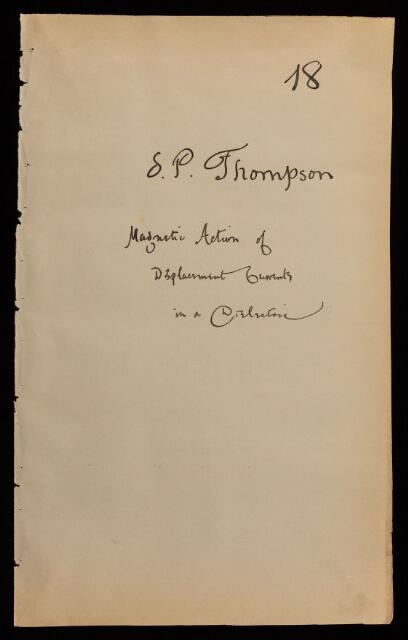 18
S. P. Thompson
Magnetic Action of
Displacement Currents
in a Dielectric